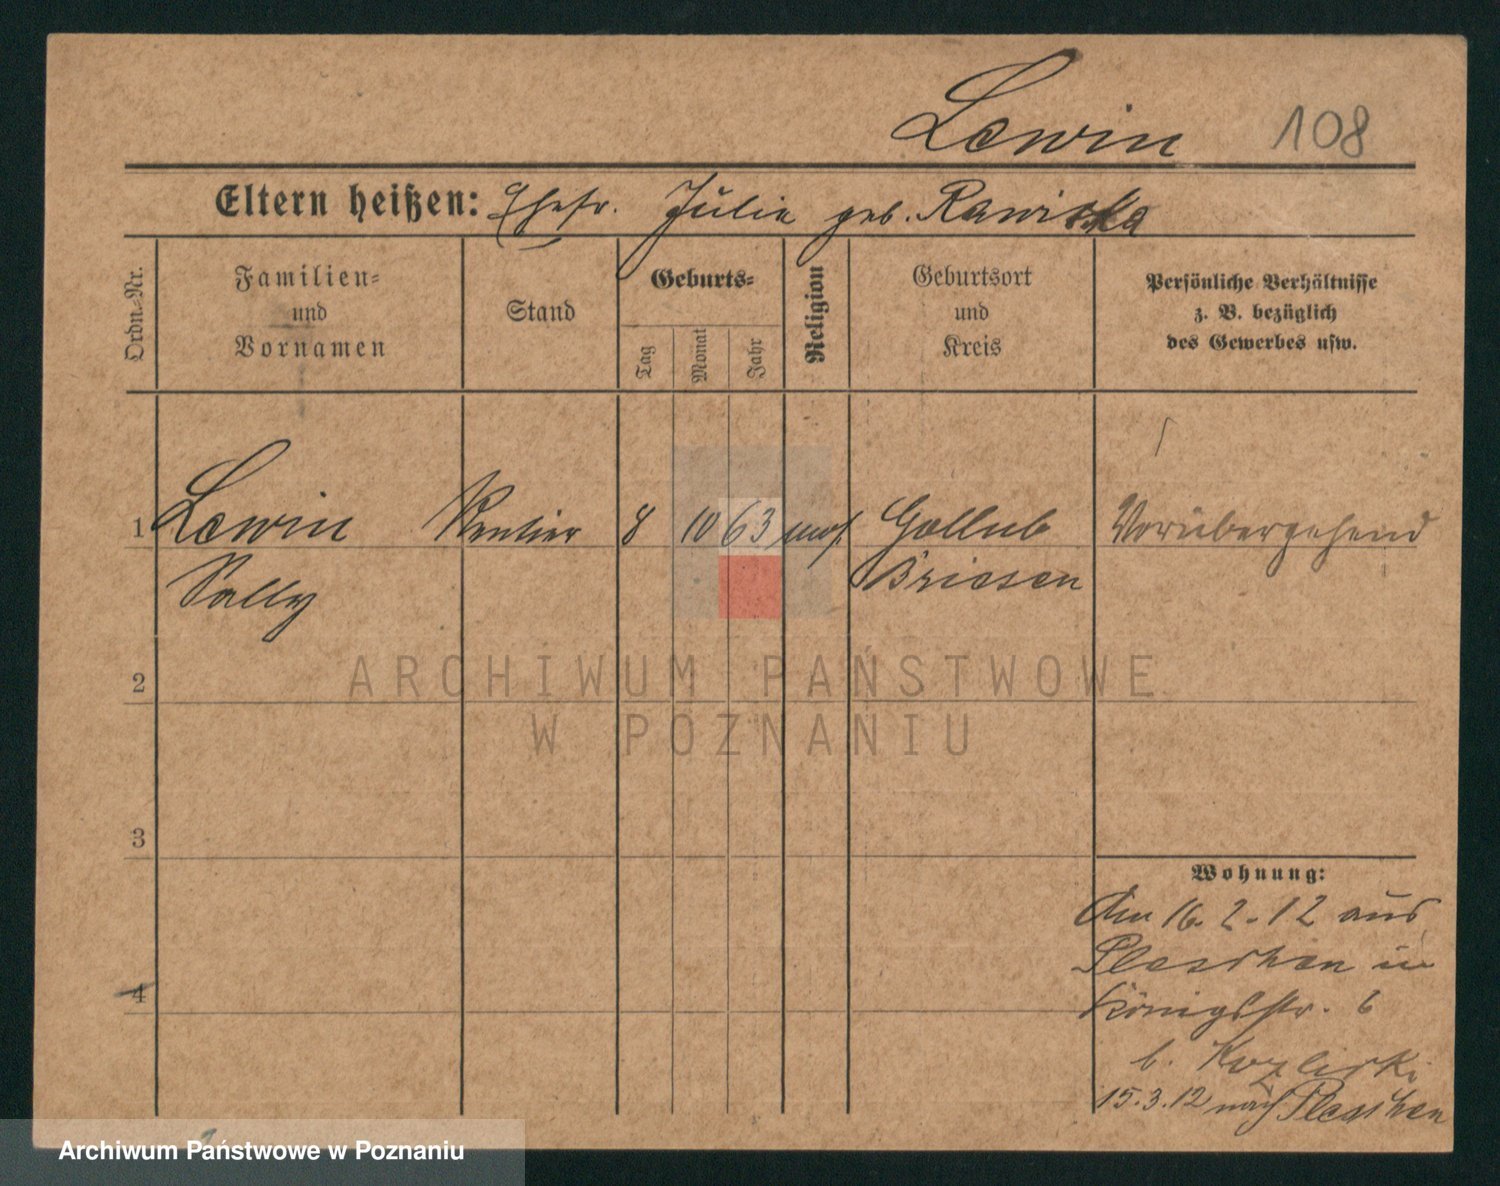 Lewin 108
Eltern heißen: Ehefr. Julie geb. Rawiska
Ordn.-Nr.
Familien-
und
Vornamen
Stand
Geburts-
Tag
Monat
Jahr
Religion
Geburtsort
und
Kreis
Persönliche Verhältnisse
z. B. bezüglich
des Gewerbes usw.
1 Lewin Rentier 8 10 63 mos. Gollub Vorübergehend
Sally Briesen
2
3
4
Wohnung:
Am 16.2.12 aus
Pleschen in
Königsstr. 6
b. Kozliski
15.3.12 nach Pleschen
ARCHIWUM PAŃSTWOWE
W POZNANIU
Archiwum Państwowe w Poznaniu